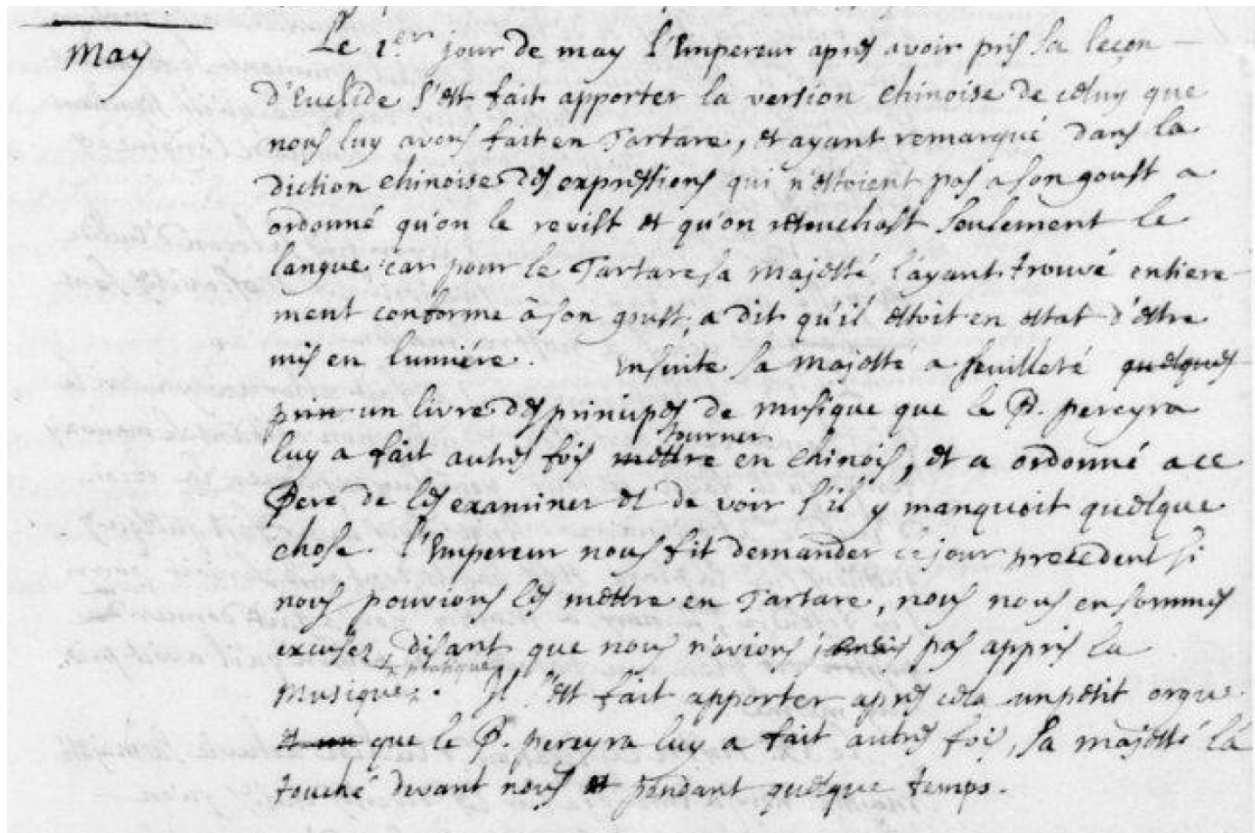 May
Le 1er jour de may l'Empereur apres avoir pris sa leçon
d'Euclide s'est fait apporter la version chinoise de celuy que
nous luy avons fait en Tartare, et ayant remarqué dans la
diction chinoise des expressions qui n'estoient pas a son goust a
ordonné qu'on le revist et qu'on retouchast seulement le
langue car pour le Tartare sa majesté l'ayant trouvé entiere
ment conforme à son goust, a dit qu'il estoit en estat d'estre
mis en lumiére. Ensuite sa majesté a feuilleté quelques
un livre des principes de musique que le P. pereyra
tourner
luy a fait autres fois mettre en chinois, et a ordonné a ce
Pere de les examiner et de voir s'il y manquoit quelque
chose. l'Empereur nous fit demander ce jour precedent si
nous pouvions les mettre en Tartare, nous nous en sommes
excusez disant que nous n'avions pas appris la
et pratique
Musique. Il s'est fait apporter apres cela un petit orgue
et un que le P. pereyra luy a fait autres fois, sa majesté la
touché devant nous et pendant quelque temps.